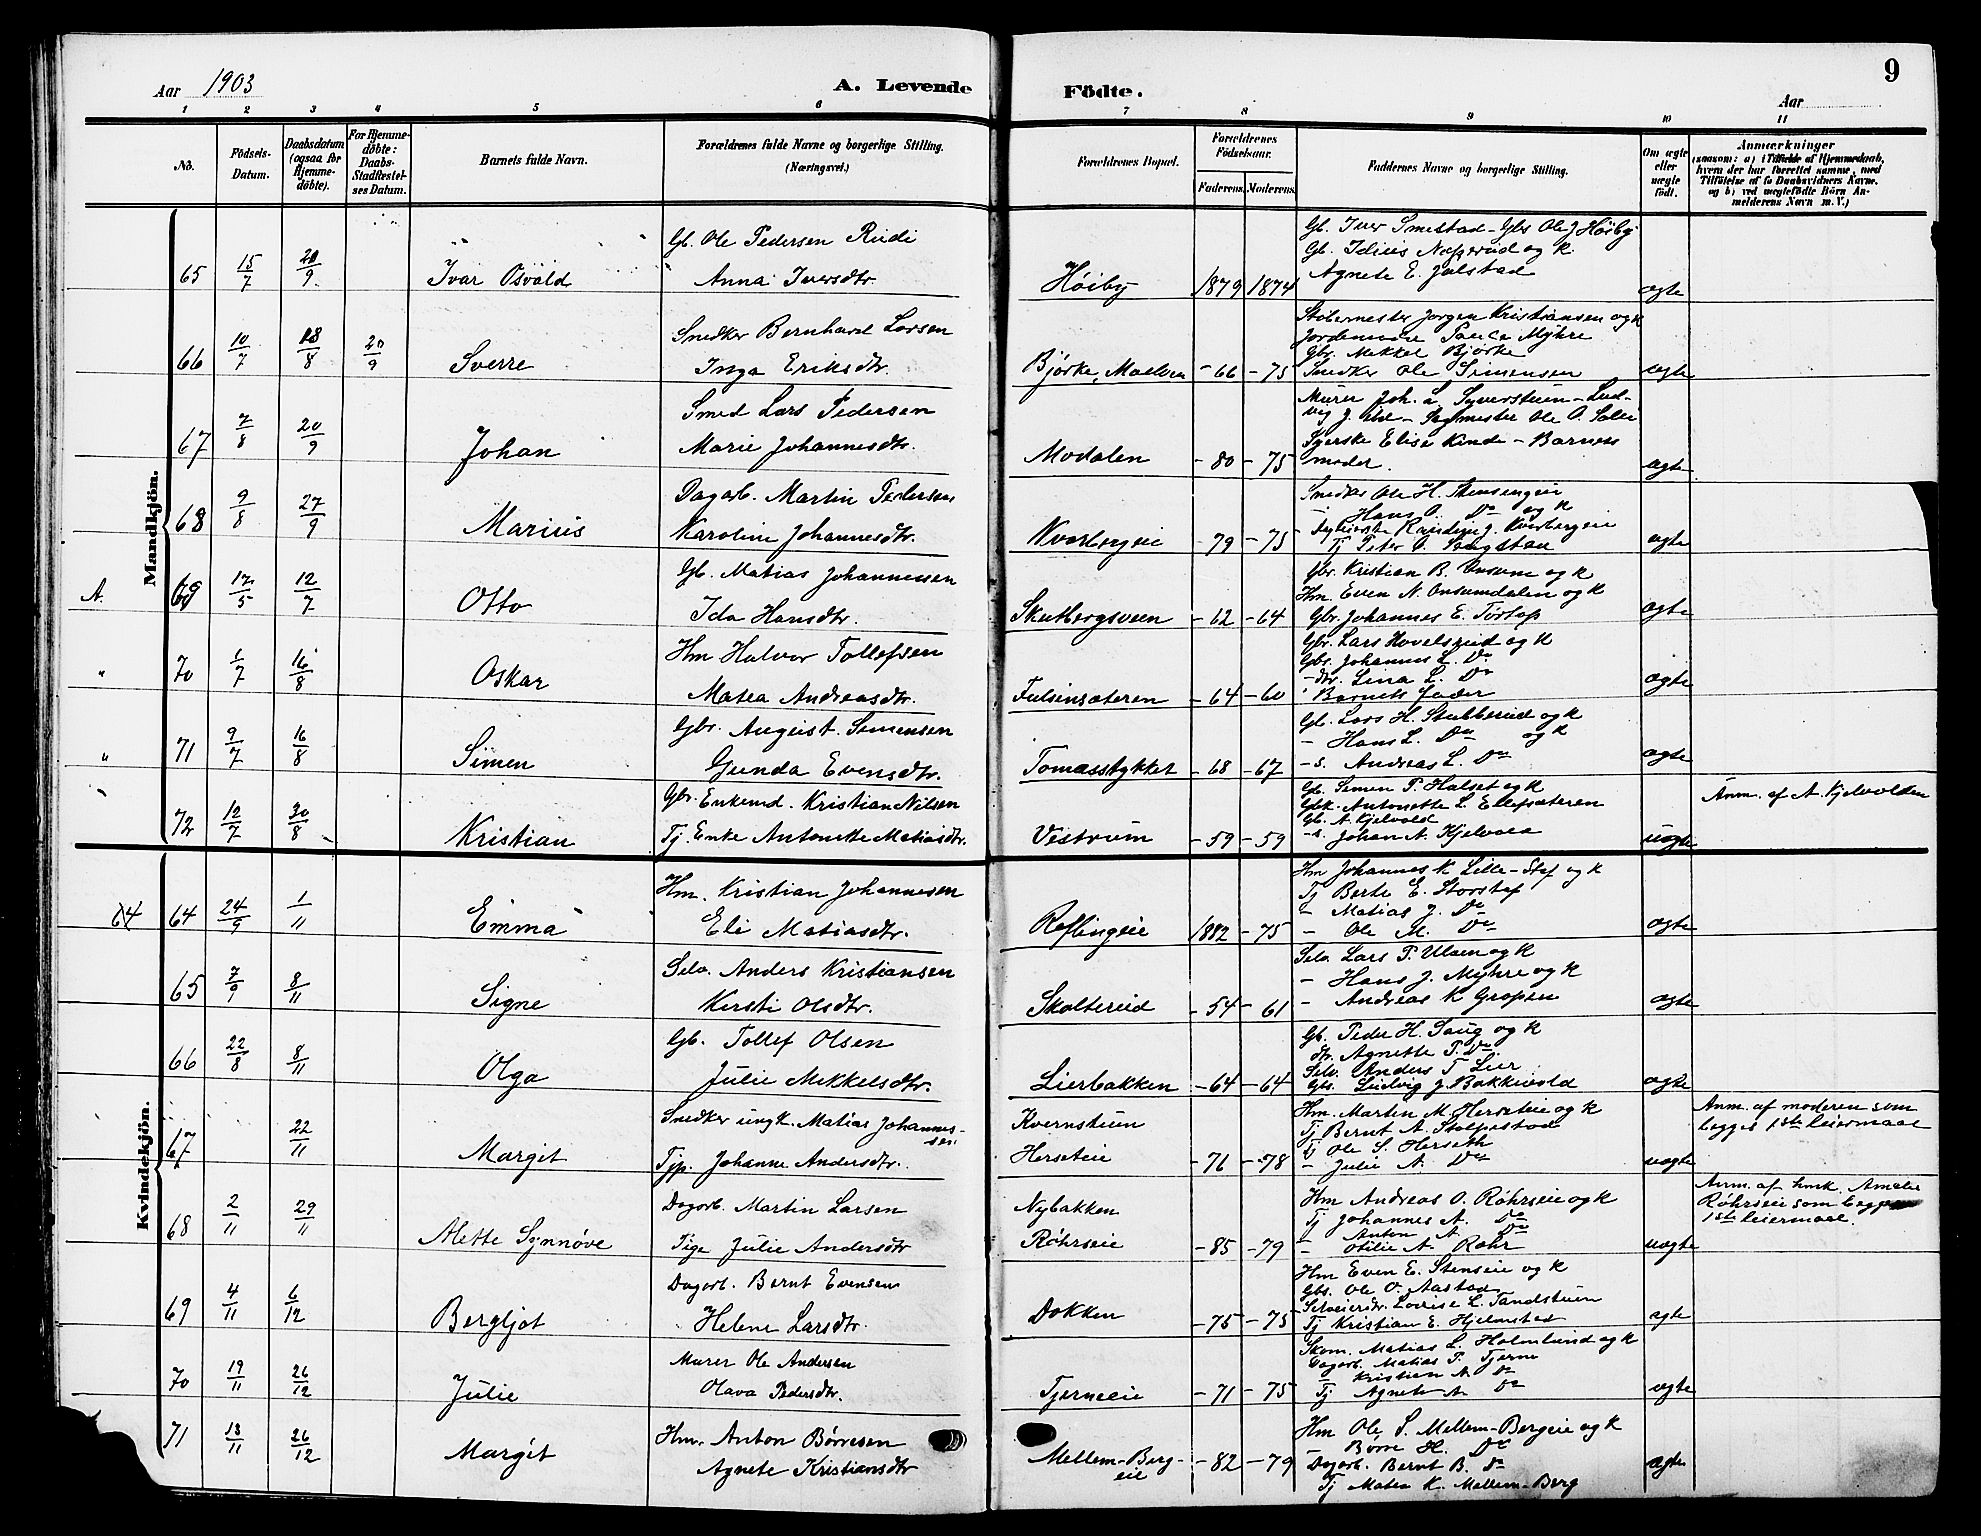 Aar 1903
A. Levende Födte.
9
Aar
1 2 3 4 5 6 7 8 9 10 11
No. Födsels-Datum. Daabsdatum (ogsaa for Hjemmedöbte). For Hjemmedöbte: Daabs-Stadfæstelses Datum. Barnets fulde Navn. Forældrenes fulde Navne og borgerlige Stilling. (Næringsvei.) Forældrenes Bopæl. Forældrenes Födselsaar. Faderens. Moderens. Faddernes Navne og borgerlige Stilling. Om ægte eller uægte födt. Anmærkninger (saasom: a) i Tilfælde af Hjemmedaab, hvem der har forrettet samme, med Tilföielse af to Daabsvidners Navne, og b) ved uægtefödte Börn Anmelderens Navn m. V.)
Mandkjön.
65 15/7 20/9 Ivar Osvald Gb. Ole Pedersen Rudi
Anna Iversdtr. Höiby 1879 1874 Gb. Iver Smestad - Gbs Ole J Höiby
Gb. Idius Næperud og k
Agnete E. Jølstad ægte
66 10/7 18/8 20/9 Sverre Snedker Bernhard Larsen
Inga Eriksdtr. Bjørke, Moelven -66 -75 Jørgen Kristiansen og k
Myhre
Gbr. Mikkel Bjørke
Snedker Ole Simensen ægte
67 7/8 20/9 Johan Smed Lars Pedersen
Marie Johannesdtr. Modalen -80 -75 Murer Joh. L. Syverstuen - Lud-
vig J. - Sagmester Ole O.
Syerske Elise Kinde - Barnets
moder. ægte
68 9/8 27/9 Marius Dagarb. Martin Pedersen
Karoline Johannesdtr. Kvarbergeie -79 -75 Snedker Ole H. Stensengeie
Hans O. Do og k
J. Kvarbergeie
Tj Peter O. ægte
A. 69 17/5 12/7 Otto Gb. Matias Johannessen
Ida Hansdtr. Skutbergsveen -62 -64 Gbr. Kristian B. Onsum og k
Hm. Even N. Onsumdalen og k
Gbr. Johannes E. Tørtop ægte
" 70 1/7 16/8 Oskar Hm Halvor Tollefsen
Matea Andreasdtr. Fulsinsæteren -64 -60 Gbr. Lars Hovelsrud og k
Gbs. Johannes L. Do
- dtr. Lina L. Do
Barnets fader ægte
" 71 9/7 16/8 Simen Gbr. August Simensen
Gunda Evensdtr. Tomasstykket -68 -67 Gb. Lars H. Stubberud og k
- Hans L. Do og k
- s. Andreas L. Do ægte
72 12/7 30/8 Kristian Gbr. Enkemd. Kristian Nilsen
Tj. Enke Antonette Matiasdtr. Vestrum -59 -59 Gb. Simen P. Halset og k
Gbk. Antonette L. Ellefsæteren
Gb. A. Kjelvold
- s. Johan A. Kjelvold uægte Anm. af A. Kjelvolden
Kvindekjön.
64 64 24/9 1/11 Emma Hm. Kristian Johannesen
Eli Matiasdtr. Reflingeie 1882 -75 Hm Johannes K Lille-Staf og k
Tj Berte E. Storstaf
- Matias J. Do
- Ole M. Do ægte
65 7/9 8/11 Signe Selv. Anders Kristiansen
Kersti Olsdtr. Skolterud -54 -61 Selv. Lars P. Ulven og k
- Hans J. Myhre og k
- Andreas K Gropen ægte
66 22/8 8/11 Olga Gb. Tollef Olsen
Julie Mikkelsdtr. Lierbakken -64 -64 Gb. Peder H. Saug og k
dtr. Agnette P. Do.
Selv. Anders T Lier
Gbs. Ludvig J Bakkevold ægte
67 22/11 Margit Snedker ungk. Matias Johannes-
sen
Tjp. Johanne Andersdtr. Kvernstuen
Herseteie -76 -78 Hm. Martin M. Herseteie og k
Tj Bernt A Stolpestad
Tj Ole S. Herseth
- Julie A. Do uægte Anm. af moderen som
begges 1ste leiermaal
68 2/11 29/11 Alette Synnöve Dagarb. Martin Larsen
Pige Julie Andersdtr Nybakken
Röhrseie -85 -79 Hm Andreas O. Röhrseie og k
Tj Johannes A. Do
- Anton A Do
- Otilie A. Røhr uægte Anm. af hmk. Amalie
Röhrseie som begges
1ste leiermaal.
69 4/11 6/12 Bergljot Dagarb. Bernt Evensen
Helene Larsdtr. Dokken -75 -75 Hm Even E. Stenseie og k
Gbs. Ole O. Aastad
Selveierdtr. Lovise L. Sandstuen
Tj Kristian E. Hjelmstad ægte
70 19/11 26/12 Julie Murer Ole Andersen
Olava Pedersdtr. Tjerneeie -71 -75 Skom. Matias L. Holmlund og k
Dagarb. Matias P. Tjerne
- Kristian A. Do
Tj Agnete A. Do ægte
71 13/11 26/12 Margit Hm. Anton Börresen
Agnete Kristiansdtr Mellem-Berg-
eie -82 -79 Hm Ole S. Mellem-Bergeie og k
- Börre H. Do
Dagarb. Bernt B. Do
Tj Matea K. Mellem-Berg ægte